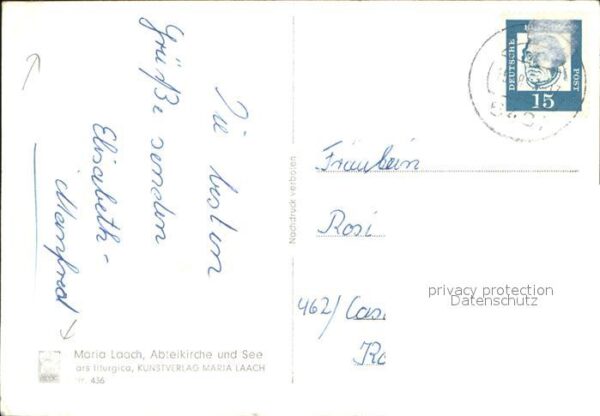 Die besten
Grüße senden
Elisabeth -
Manfred
Maria Laach, Abteikirche und See
ars liturgica, KUNSTVERLAG MARIA LAACH
Nr. 436
Nachdruck verboten
DEUTSCHE
POST
15
Fräulein
Rosi
462/Cas
privacy protection
Datenschutz